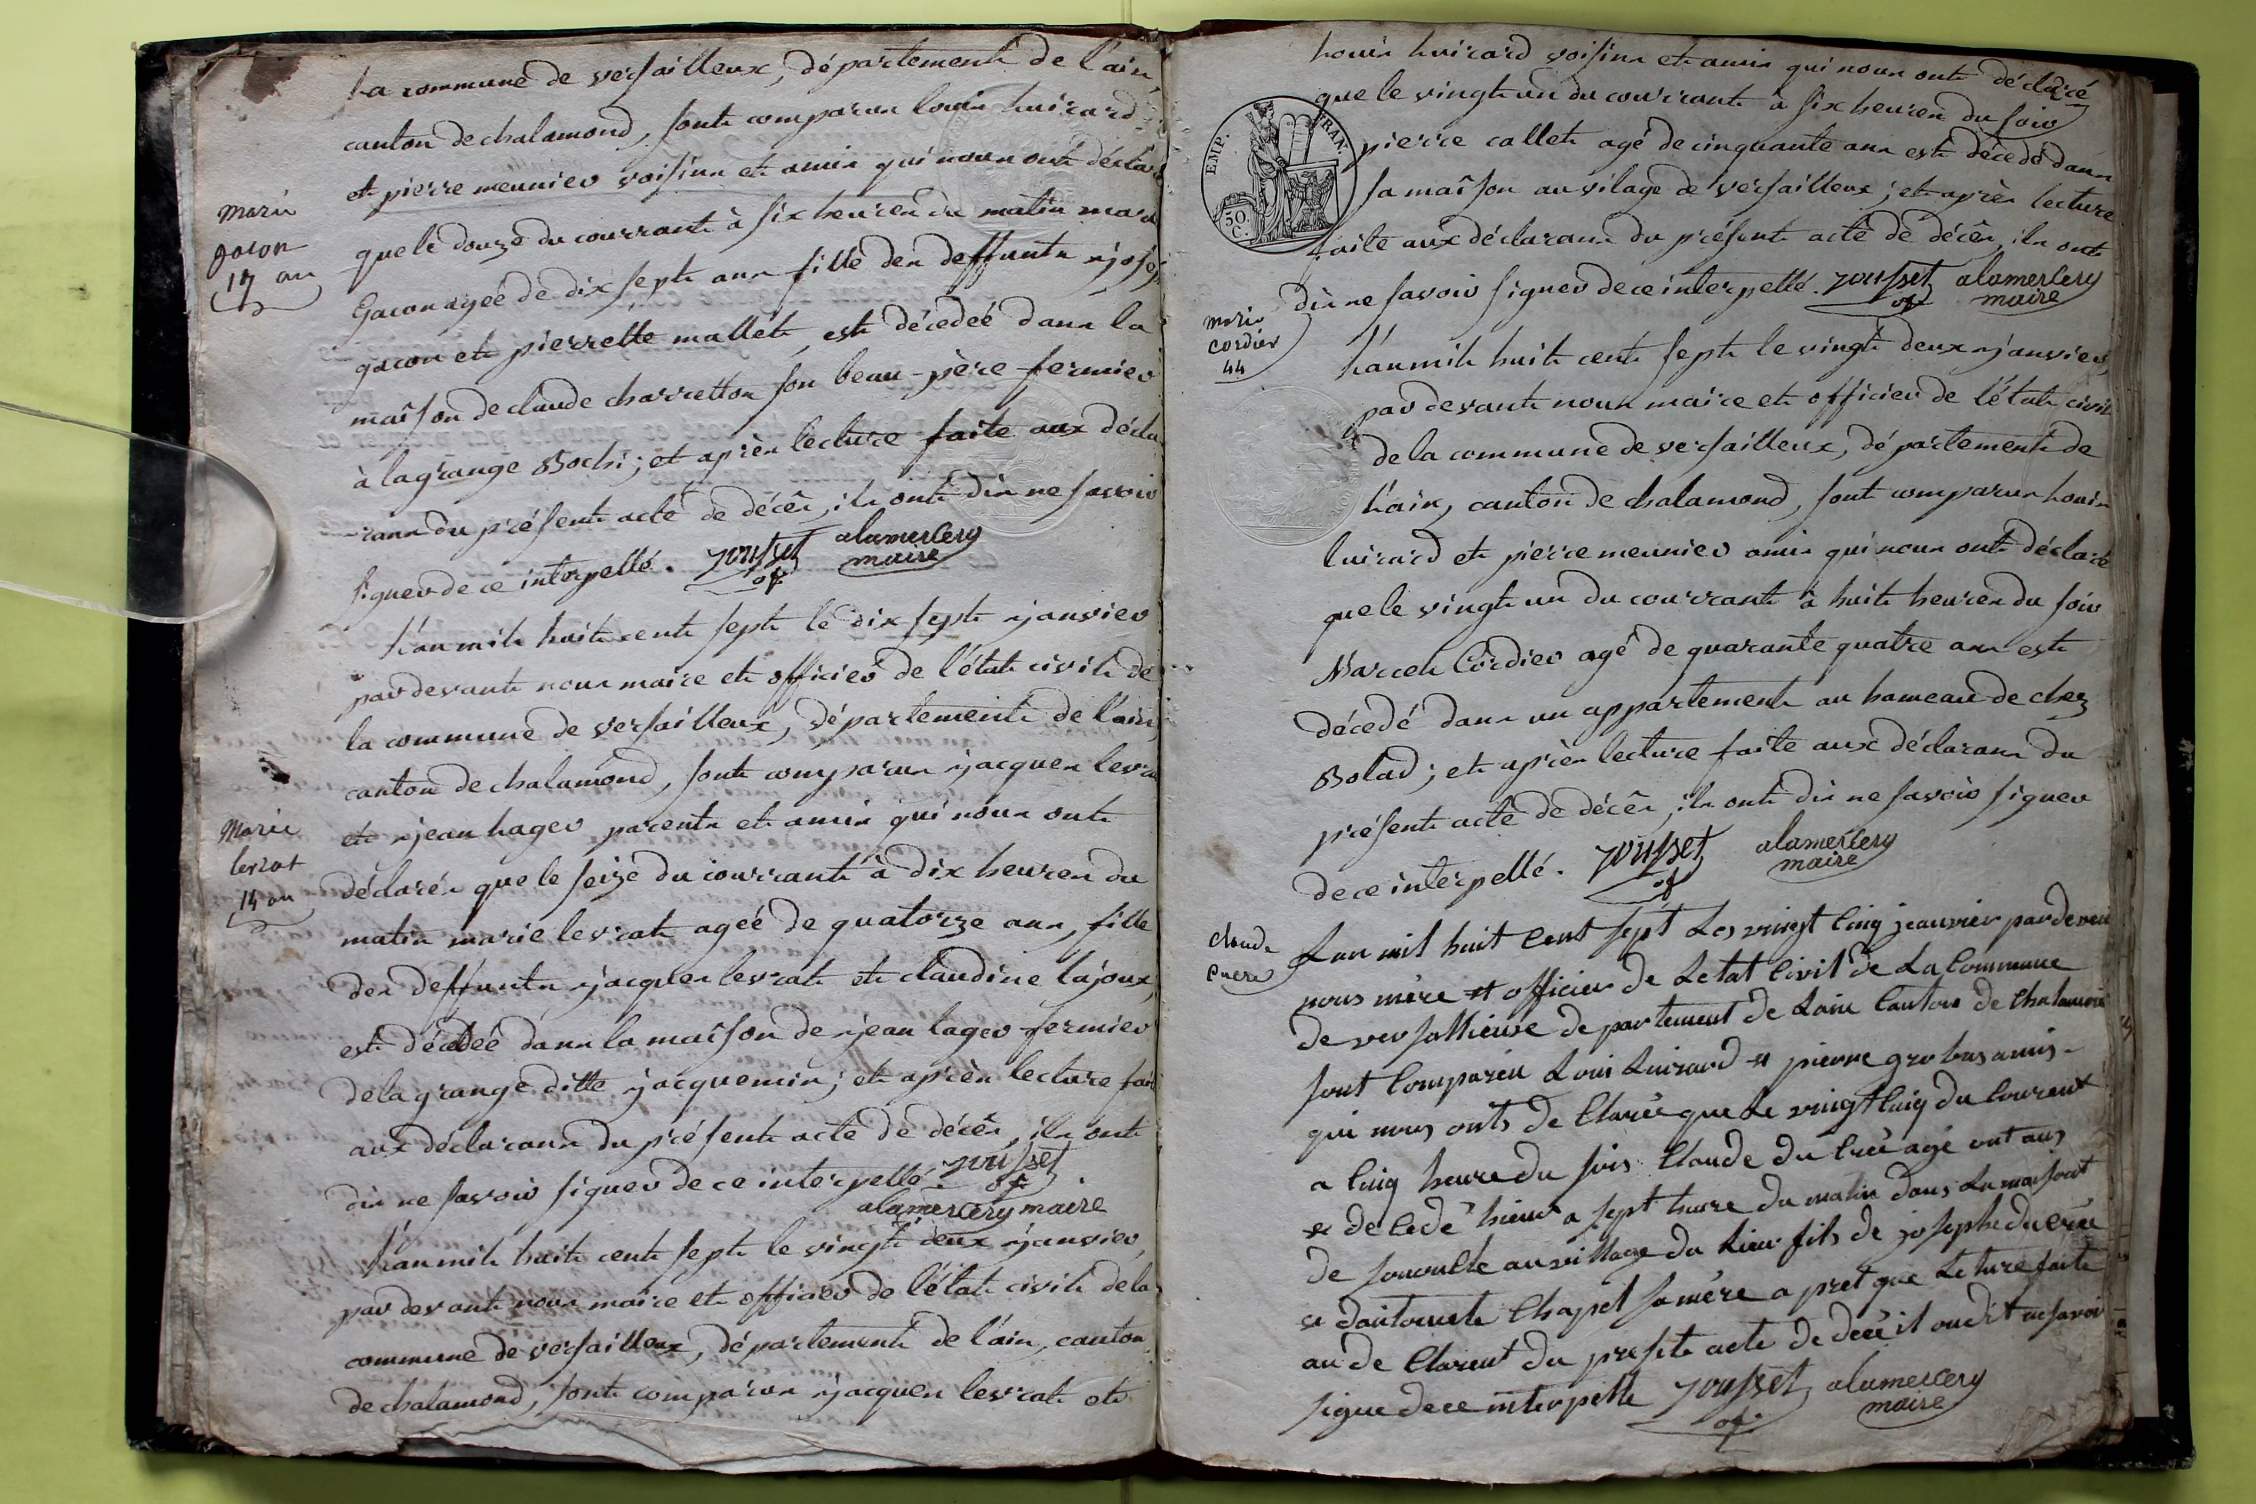 la commune de versailleux, département de l'ain,
canton de chalamond, sont comparus louis luirard
et pierre meunier voisins et amis qui nous ont déclaré
que le douze du courrant à six heures du matin marie
marie
gacon
17 ans
gacon agée de dix sept ans fille des deffunts joseph
gacon et pierrette mallet, est décedeé dans la
maison de claude charretton son beau-père fermier
à la grange Bochi; et après lecture faite aux décla
rans du présent acte de décès, ils ont dis ne savoir
signer de ce interpellé. Jousset alamercery
of maire
L'an mil huit cent sept le dix sept janvier
par devant nous maire et officier de l'état civil de
la commune de versailleux, département de l'ain,
canton de chalamond, sont comparus jacques levra
et jean lager parents et amis qui nous ont
Marie
levrat
14 an
déclarés que le seize du courrant à dix heures du
matin marie levrat agée de quatorze ans, fille
des deffunts jacques levrat et claudine lajoux,
est décedeé dans la maison de jean lager fermier
de la grange ditte jacquemin; et après lecture fait
aux déclarans du présent acte de décès, ils ont
dis ne savoir signer de ce interpellé. Jousset
of
alamercery maire
L'an mil huit cent sept le vingt deux janvier,
par devant nous maire et officier de l'état civil de la
commune de versailleux, département de l'ain, canton
de chalamond, sont comparus jacques levrat et
louis luirard voisins et amis qui nous ont déclaré
que le vingt un du courrant à six heures du soir
EMP. FRAN.
50. C.
pierre callet agé de cinquante ans est décedé dans
sa maison au vilage de versailleux; et après lecture
faite aux déclarans du présent acte de décès, ils ont
dis ne savoir signer de ce interpellé. Jousset alamercery
of maire
marie
cordier
44
L'an mil huit cent sept le vingt deux janvier,
par devant nous maire et officier de l'état civil
de la commune de versailleux, département de
l'ain, canton de chalamond, sont comparus louis
luirard et pierre meunier amis qui nous ont déclaré
que le vingt un du courrant à huit heures du soir
Marcel Cordier agé de quarante quatre ans est
décedé dans un appartement au hameau de chez
Bolad; et après lecture faite aux déclarans du
présent acte de décès, ils ont dis ne savoir signer
de ce interpellé. Jousset alamercery
of maire
Claude
Cuera
Lan mil huit Cent sept Les vingt Cinq jeanvier par deven
nous mère et officier de Letat Civil de La Commune
de versallieuse de partement de Lain Canton de Chalamon
sont Comparcu Loui Luirard et pierre grobas amis
qui nous onts de Claréé que Le vingt Cinq du Courent
a Cinq heure du soir Claude du Crué agé ont ans
et de Cedé hieur a sept heure du matin dans La maison
de au village du Lieu fils de josephe du Crue
et dantoinete Chapel sa mère a pret que Leture faite
au de Clarent du presete acte de decé il on dit ne savoir
signe de ce interpelle Jousset alamercery
of maire